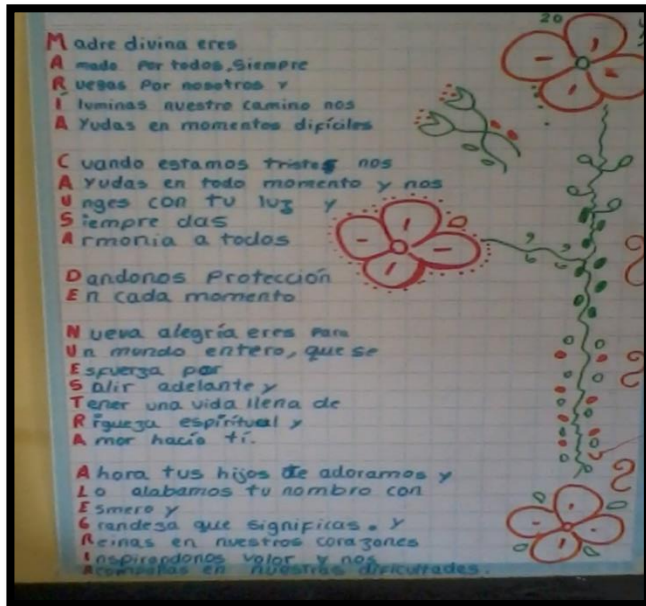 20
Madre divina eres
Amado por todos, Siempre
Ruegas Por nosotros y
Iluminas nuestro camino nos
AYudas en momentos difíciles
Cuando estamos tristes nos
AYudas en todo momento y nos
Unges con tu luz y
Siempre das
Armonia a todos
Dandonos Protección
En cada momento
Nueva alegría eres Para
Un mundo entero, que se
Esfuerza por
Salir adelante y
Tener una vida llena de
Riqueza espíritual y
Amor hacia tí.
Ahora tus hijos te adoramos y
Lo alabamos tu nombro con
Esmero y
Grandesa que significas. Y
Reinas en nuestros corazones
Inspirandonos valor y nos
Acompañas en nuestras dificultades.